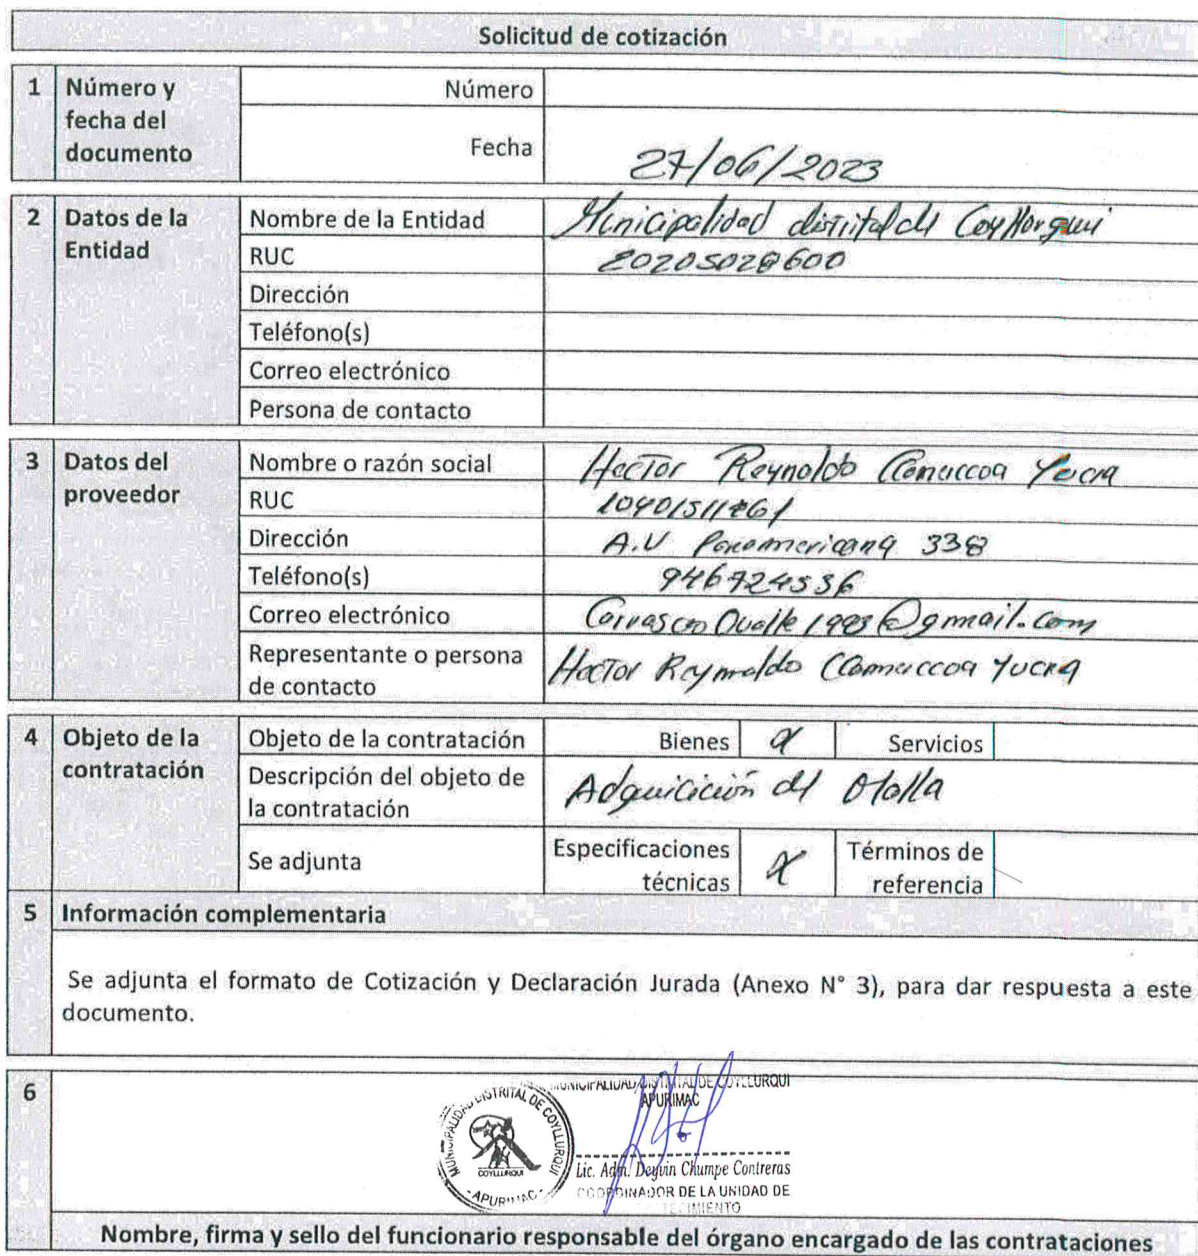 Solicitud de cotización
1 Número y fecha del documento
Número
Fecha 27/06/2023
2 Datos de la Entidad
Nombre de la Entidad Municipalidad distrital de Coyllorqui
RUC 20205028600
Dirección
Teléfono(s)
Correo electrónico
Persona de contacto
3 Datos del proveedor
Nombre o razón social Hector Reynaldo Ccamaccoa Yucra
RUC
Dirección A.V Panamericana 338
Teléfono(s)
Correo electrónico
Representante o persona de contacto Hector Reynaldo Ccamaccoa Yucra
4 Objeto de la contratación
Objeto de la contratación Bienes X Servicios
Descripción del objeto de la contratación Adquicición de
Se adjunta Especificaciones técnicas X Términos de referencia
5 Información complementaria
Se adjunta el formato de Cotización y Declaración Jurada (Anexo N° 3), para dar respuesta a este
documento.
6
MUNICIPALIDAD DISTRITAL DE COYLLURQUI
APURIMAC
MUNICIPALIDAD DISTRITAL DE COYLLURQUI
COYLLURQUI
- APURIMAC -
Lic. Adm. Deyvin Chumpe Contreras
COORDINADOR DE LA UNIDAD DE
Nombre, firma y sello del funcionario responsable del órgano encargado de las contrataciones